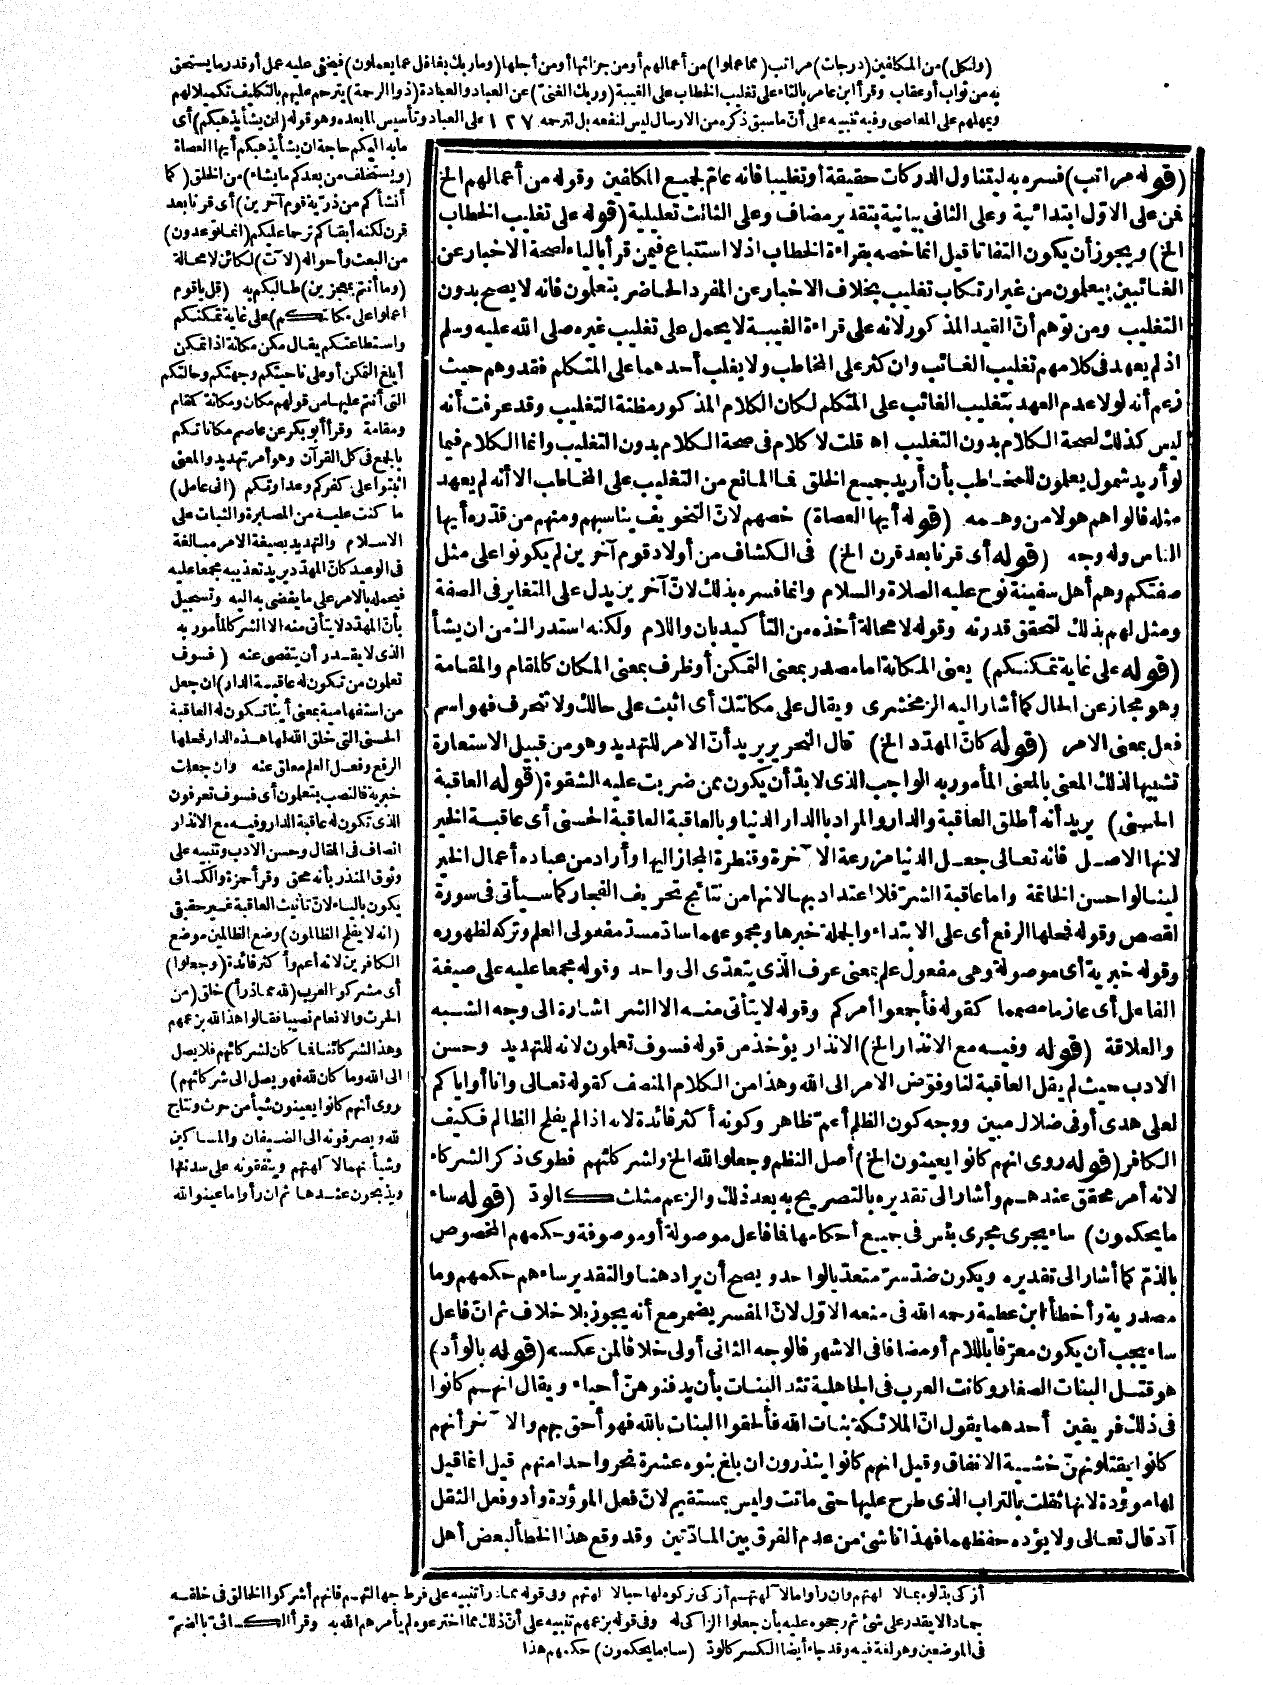 (ولكل) من المكلفين (درجات) مراتب (مما عملوا) من أعمالهم أو من جزائها أو من أجلها (وما ربك بغافل عما يعملون) فيخفى عليه عمل أو قدر ما يستحق
به من ثواب أو عقاب وقرأ ابن عامر بالتاء على تغليب الخطاب على الغيبة (وربك الغنىّ) عن العباد والعبادة (ذو الرحمة) يترحم عليهم بالتكليف تكميلا لهم
ويمهلهم على المعاصى وفيه تنبيه على أنّ ما سبق ذكره من الارسال ليس لنفعه بل لترحمه ١٢٧ على العباد وتأسيس لما بعده وهو قوله (ان يشأ يذهبكم) أى
ما به اليكم حاجة ان يشأ يذهبكم أيها العصاة
(ويستخلف من بعدكم ما يشاء) من الخلق (كما
أنشأكم من ذرّية قوم آخرين) أى قرنا بعد
قرن لكنه أبقاكم ترحما عليكم (انما توعدون)
من البعث وأحواله (لآت) لكائن لا محالة
(وما أنتم بمعجزين) طالبكم به (قل يا قوم
اعملوا على مكانتكم) على غاية تمكنكم
واستطاعتكم يقال مكن مكانة اذا تمكن
أبلغ التمكن أو على ناحيتكم وجهتكم وحالتكم
التى أنتم عليها من قولهم مكان ومكانة كمقام
ومقامة وقرأ أبو بكر عن عاصم مكاناتكم
بالجمع فى كل القرآن وهو أمر تهديد والمعنى
اثبتوا على كفركم وعداوتكم (انى عامل)
ما كنت عليه من المصابرة والثبات على
الاسلام والتهديد بصيغة الامر مبالغة
فى الوعيد كانّ المهدّد يريد تعذيبه مجمعا عليه
فيحمله بالامر على ما يفضى به اليه وتسجيل
بأنّ المهدّد لا يتأتى منه الا الشر كالمأمور به
الذى لا يقدر أن يتفصى عنه (فسوف
تعلمون من تكون له عاقبة الدار) ان جعل
من استفهامية بمعنى أينا تكون له العاقبة
الحسنى التى خلق الله لها هذه الدار فمحلها
الرفع وفعل العلم معلق عنه وان جعلت
خبرية فالنصب بتعلمون أى فسوف تعرفون
الذى تكون له عاقبة الدار وفيه مع الانذار
انصاف فى المقال وحسن الادب وتنبيه على
وثوق المنذر بأنه محق وقرأ حمزة والكسائى
يكون بالياء لانّ تأنيث العاقبة غير حقيقى
(انه لا يفلح الظالمون) وضع الظالمين موضع
الكافرين لانه أعم وأكثر فائدة (وجعلوا)
أى مشركو العرب (لله مما ذرأ) خلق (من
الحرث والانعام نصيبا فقالوا هذا لله بزعمهم
وهذا لشركائنا فما كان لشركائهم فلا يصل
الى الله وما كان لله فهو يصل الى شركائهم)
روى أنهم كانوا يعينون شيأ من حرث ونتاج
لله ويصرفونه الى الضيفان والمساكين
وشيأ منهما لآلهتهم وينفقونه على سدنتها
ويذبحون عندها ثم ان رأوا ما عينوا لله
(قوله مراتب) فسره به ليتناول الدركات حقيقة أو تغليبا فانه عامّ لجميع المكلفين وقوله من أعمالهم الخ
فمن على الاوّل ابتدائية وعلى الثانى بيانية بتقدير مضاف وعلى الثالث تعليلية (قوله على تغليب الخطاب
الخ) ويجوز أن يكون التفاتا قيل انما خصه بقراءة الخطاب اذ لا استتباع فيمن قرأ بالياء لصحة الاخبار عن
الغائبين بيعملون من غير ارتكاب تغليب بخلاف الاخبار عن المفرد الحاضر بتعلمون فانه لا يصح بدون
التغليب ومن توهم أنّ القيد المذكور لانه على قراءة الغيبة لا يحمل على تغليب غيره صلى الله عليه وسلم
اذ لم يعهد فى كلامهم تغليب الغائب وان كثر على المخاطب ولا يغلب أحدهما على المتكلم فقد وهم حيث
زعم أنه لولا عدم العهد بتغليب الغائب على المتكلم لكان الكلام المذكور مظنة التغليب وقد عرفت أنه
ليس كذلك لصحة الكلام بدون التغليب اه قلت لا كلام فى صحة الكلام بدون التغليب وانما الكلام فيما
لو أريد شمول يعملون للمخاطب بأن أريد جميع الخلق فما المانع من التغليب على المخاطب الا أنه لم يعهد
مثله فالواهم هو لا من وهمه (قوله أيها العصاة) خصهم لانّ التخويف يناسبهم ومنهم من قدّره أيها
الناس وله وجه (قوله أى قرنا بعد قرن الخ) فى الكشاف من أولاد قوم آخرين لم يكونوا على مثل
صفتكم وهم أهل سفينة نوح عليه الصلاة والسلام وانما فسره بذلك لانّ آخرين يدل على التغاير فى الصفة
ومثل لهم بذلك لتحقق قدرته وقوله لا محالة أخذه من التأكيد بان واللام ولكنه استدراك من ان يشأ
(قوله على غاية تمكنكم) يعنى المكانة اما مصدر بمعنى التمكن أو ظرف بمعنى المكان كالمقام والمقامة
وهو مجاز عن الحال كما أشار اليه الزمخشرى ويقال على مكانتك أى اثبت على حالك ولا تنحرف فهو اسم
فعل بمعنى الامر (قوله كانّ المهدّد الخ) قال النحرير يريد أنّ الامر للتهديد وهو من قبيل الاستعارة
تشبيها لذلك المعنى بالمعنى المأمور به الواجب الذى لا بدّ أن يكون ممن ضربت عليه الشقوة (قوله العاقبة
الحسنى) يريد أنه أطلق العاقبة والدار والمراد بالدار الدنيا وبالعاقبة العاقبة الحسنى أى عاقبة الخير
لانها الاصل فانه تعالى جعل الدنيا مزرعة الآخرة وقنطرة المجاز اليها وأراد من عباده أعمال الخير
لينالوا حسن الخاتمة وأما عاقبة الشرّ فلا اعتداد بها لانها من نتائج تحريف الفجار كما سيأتى فى سورة
القصص وقوله فمحلها الرفع أى على الابتداء والجملة خبرها ومجموعهما سادّ مسدّ مفعولى العلم وتركه لظهوره
وقوله خبرية أى موصولة وهى مفعول علم بمعنى عرف الذى يتعدّى الى واحد وقوله مجمعا عليه على صيغة
الفاعل أى عازما مصمما كقوله فأجمعوا أمركم وقوله لا يتأتى منه الا الشر اشارة الى وجه الشبه
والعلاقة (قوله وفيه مع الانذار الخ) الانذار يؤخذ من قوله فسوف تعلمون لانه للتهديد وحسن
الادب حيث لم يقل العاقبة لنا وفوّض الامر الى الله وهذا من الكلام المنصف كقوله تعالى وانا أو اياكم
لعلى هدى أو فى ضلال مبين ووجه كون الظلم أعمّ ظاهر وكونه أكثر فائدة لانه اذا لم يفلح الظالم فكيف
الكافر (قوله روى انهم كانوا يعينون الخ) أصل النظم وجعلوا لله الخ ولشركائهم فطوى ذكر الشركاء
لانه أمر محقق عندهم وأشار الى تقديره بالتصريح به بعد ذلك والزعم مثلث كالودّ (قوله ساء
ما يحكمون) ساء يجرى مجرى بئس فى جميع أحكامها فما فاعل موصولة أو موصوفة وحكمهم المخصوص
بالذمّ كما أشار الى تقديره ويكون ضدّ سرّ متعدّ بالواحد ويصح أن يراد هنا والتقدير ساءهم حكمهم وما
مصدرية وأخطأ ابن عطية رحمه الله فى منعه الاوّل لانّ المفسر يضمر مع أنه يجوز بلا خلاف ثم انّ فاعل
ساء يجب أن يكون معرّفا باللام أو مضافا فى الاشهر فالوجه الثانى أولى خلافا لمن عكسه (قوله بالوأد)
هو قتل البنات الصغار وكانت العرب فى الجاهلية تئد البنات بأن يدفنوهنّ أحياء ويقال انهم كانوا
فى ذلك فريقين أحدهما يقول انّ الملائكة بنات الله فألحقوا البنات بالله فهو أحق بهم والآخر أنهم
كانوا يقتلونهنّ خشية الانفاق وقيل انهم كانوا ينذرون ان بلغ بنوه عشرة نحر واحدا منهم قيل انما قيل
لها موؤدة لانها ثقلت بالتراب الذى طرح عليها حتى ماتت وليس بمستقيم لانّ فعل الموؤدة وأد وفعل الثقل
آد قال تعالى ولا يؤده حفظهما فهذا ناشئ من عدم الفرق بين المادّتين وقد وقع هذا الخطأ لبعض أهل
أزكى بدلوه بما لآلهتهم وان رأوا ما لآلهتهم أزكى تركوه لها حبا لآلهتهم وفى قوله مما ذرأ تنبيه على فرط جهالتهم فانهم أشركوا الخالق فى خلقه
جمادا لا يقدر على شئ ثم رجحوه عليه بأن جعلوا الزاكى له وفى قوله بزعمهم تنبيه على أنّ ذلك مما اخترعوه لم يأمرهم الله به وقرأ الكسائىّ بالضمّ
فى الموضعين وهو لغة فيه وقد جاء أيضا الكسر كالودّ (ساء ما يحكمون) حكمهم هذا